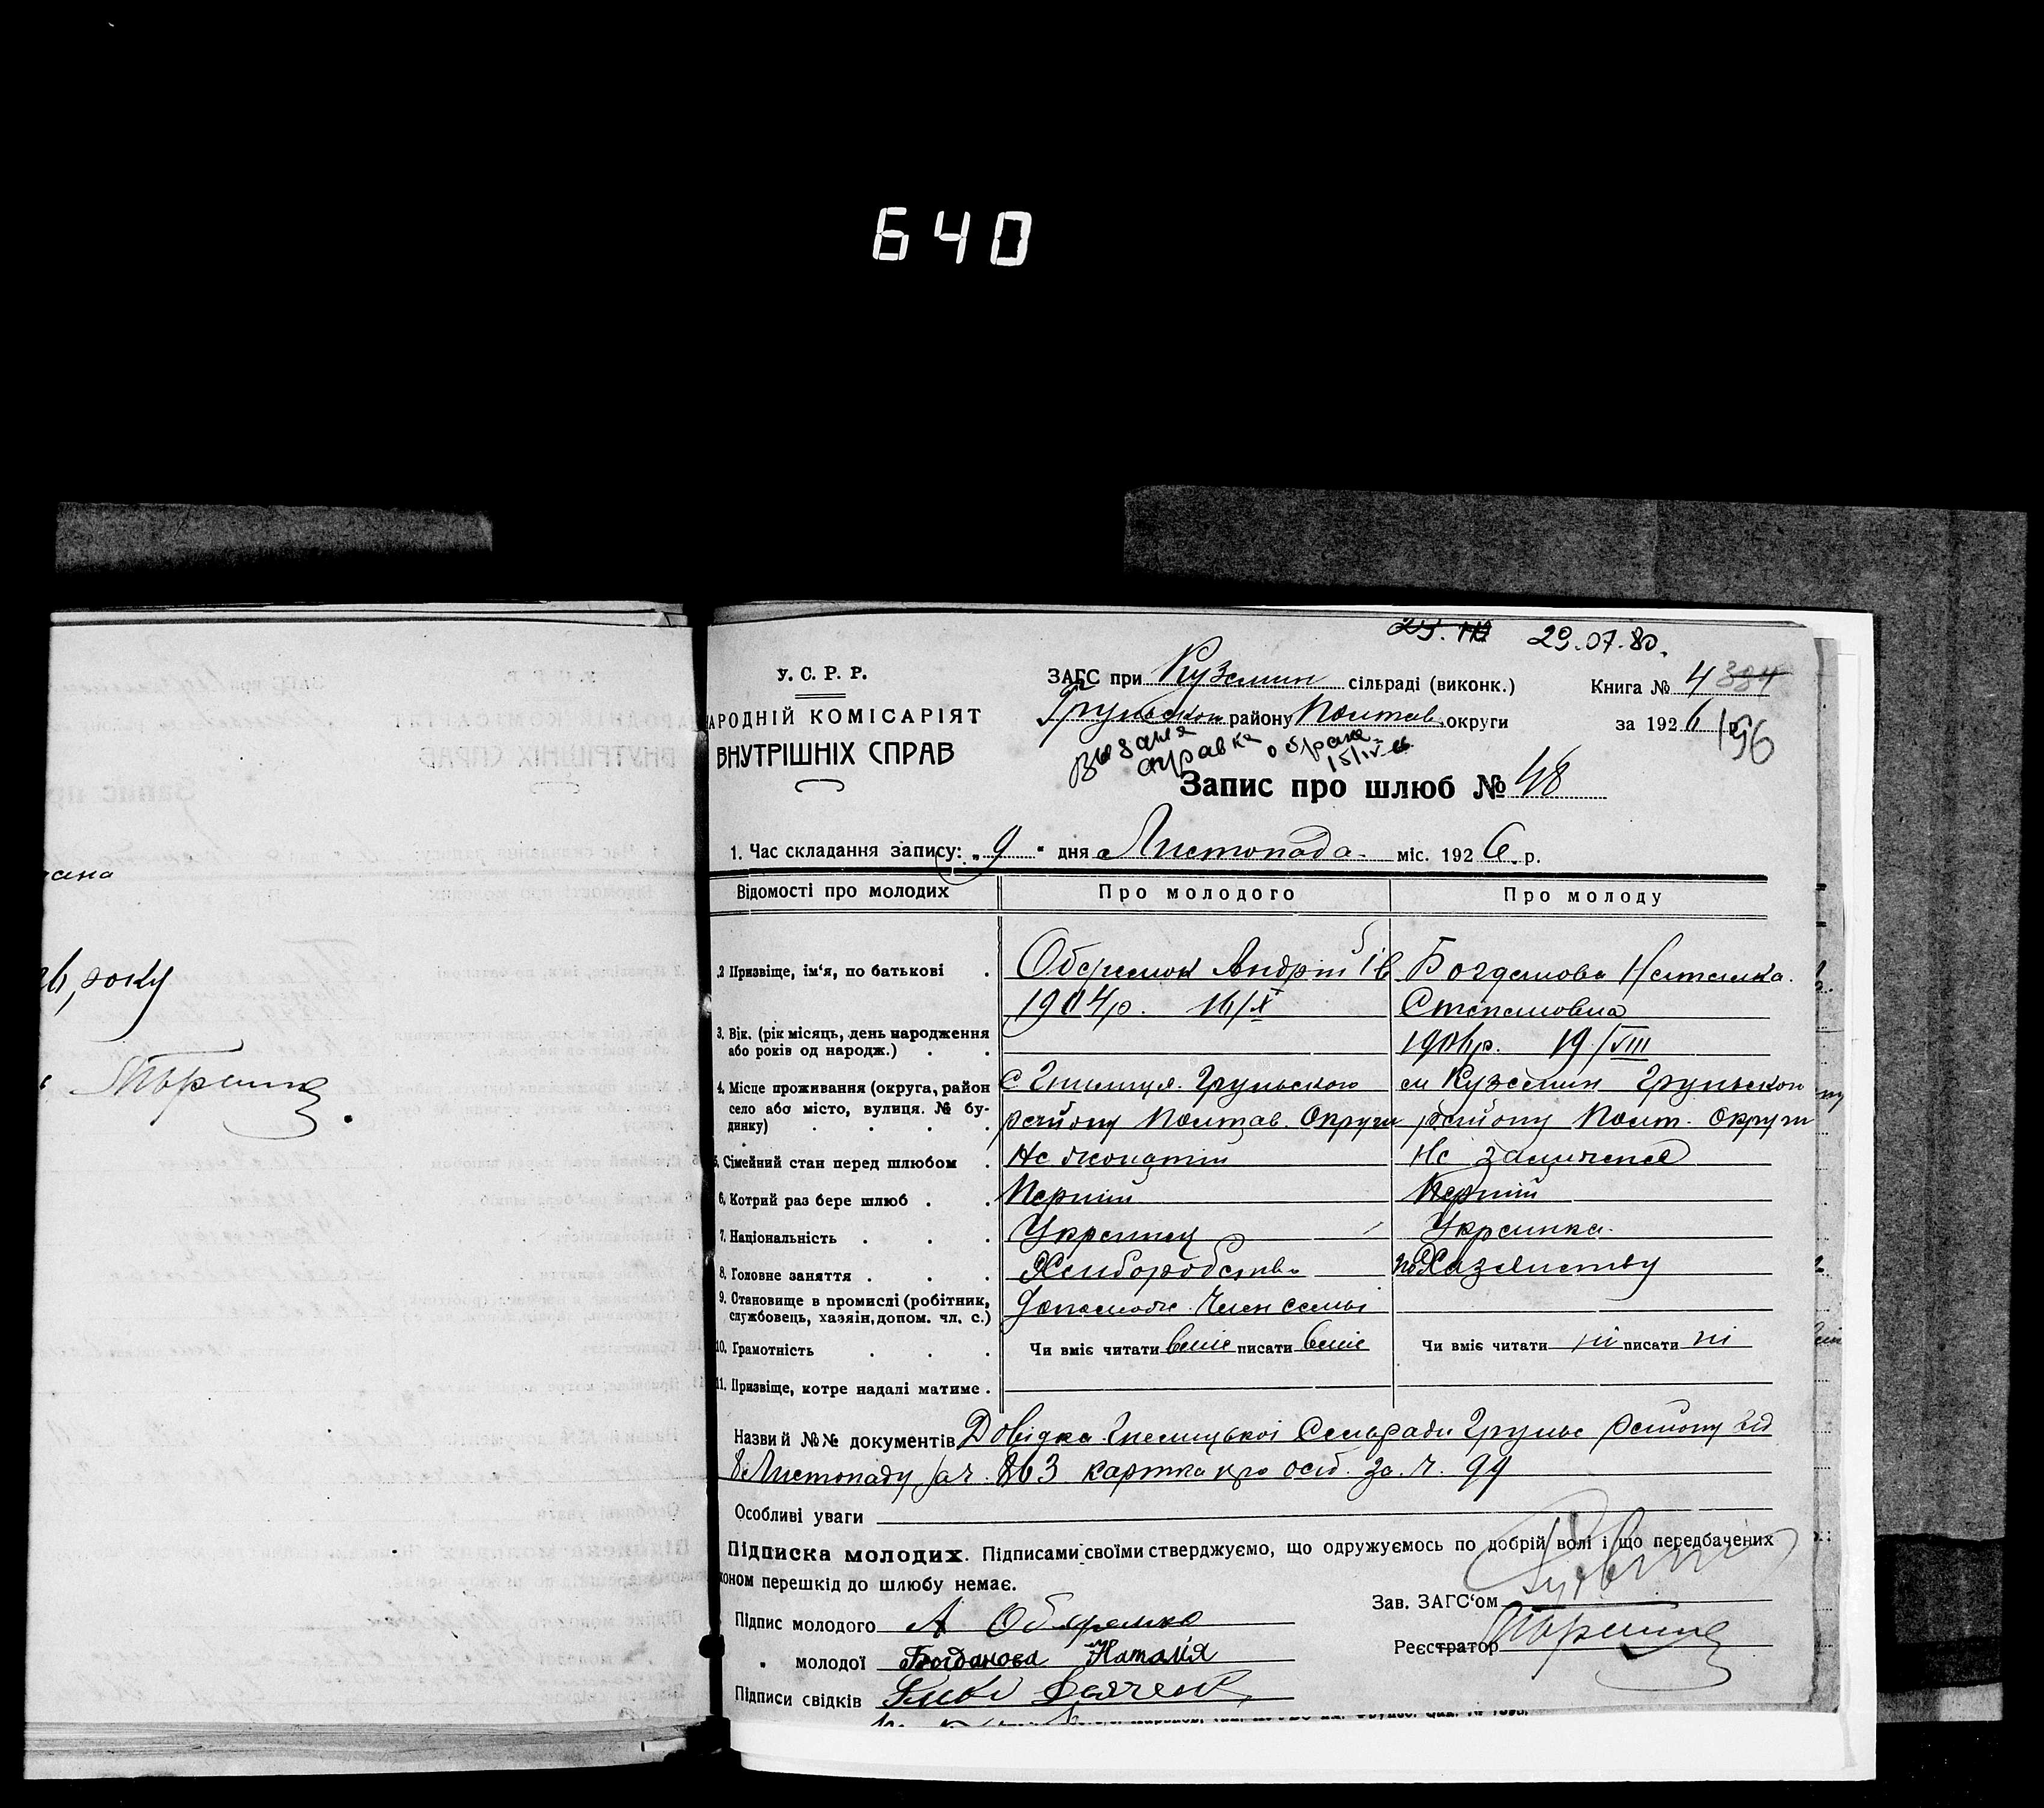 640
29.07.80.
У. С. Р. Р.
НАРОДНІЙ КОМІСАРІЯТ
ВНУТРІШНІХ СПРАВ
ЗАГС при Куземин сільраді (виконк.)
Грунськом району Полтав. округи
Книга № 4 384
за 1926 р.
196
Видана справка о браке
15/IV
Запис про шлюб № 48
1. Час складання запису: „ 9 " дня Листопада міс. 1926. р.
Відомості про молодих
Про молодого
Про молоду
2 Призвіще, ім'я, по батькові . Андрій Ів Богданова Наталка.
1904р. 16/X Степановна
3. Вік. (рік місяць, день народження
або років од народж.) . . 19/VIII
4. Місце проживання (округа, район С Грунського м Куземин Грунськом
село або місто, вулиця. № бу-
динку) . . . . району Полтав. Округи району Полт. Округи
5. Сімейний стан перед шлюбом . Не жонатий Не замужня
6. Котрий раз бере шлюб . . Перший Перший
7. Національність . . . Украинец Украинка.
8. Головне заняття . . . Хлиборобство по Хазяиству
9. Становище в промислі (робітник,
службовець, хазяін, допом. чл. с.) Допоможе. Член семьі
10. Грамотність . . . Чи вміє читати вміє писати вміє Чи вміє читати ні писати ні
11. Призвіще, котре надалі матиме .
Назви й №№ документів Довідка Сельради Грунс району від
8 Листопаду за ч. 863 картка про осіб. за. ч. 99
Особливі уваги
Підписка молодих. Підписами своїми стверджуємо, що одружуємось по добрій волі і що передбачених
коном перешкід до шлюбу немає.
Зав. ЗАГС'ом
Підпис молодого А
Реєстратор
" молодої Богданова Наталія
Підписи свідків
26, року